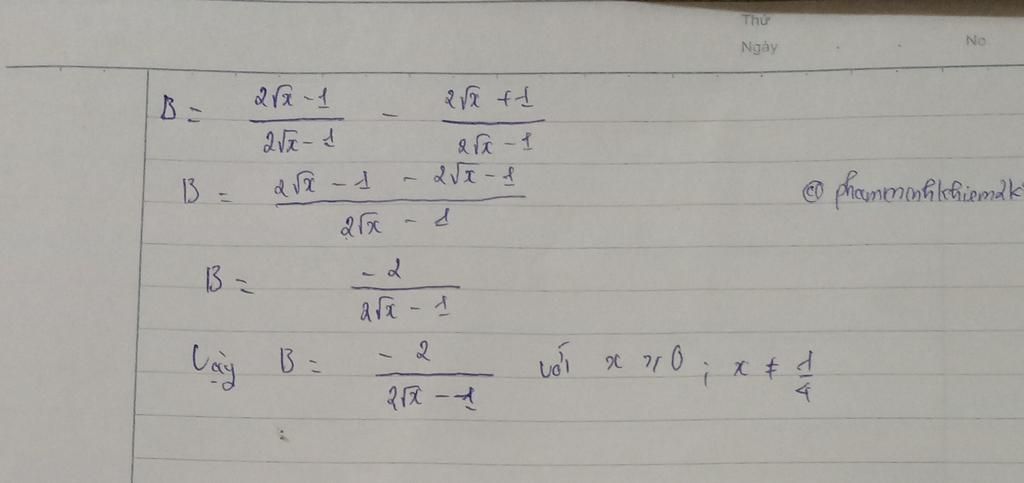 Thứ
Ngày . . No
B = \frac{2\sqrt{x} - 1}{2\sqrt{x} - 1} - \frac{2\sqrt{x} + 1}{2\sqrt{x} - 1}
B = \frac{2\sqrt{x} - 1 - 2\sqrt{x} - 1}{2\sqrt{x} - 1}
© phamminhkhiem2k
B = \frac{-2}{2\sqrt{x} - 1}
Vậy B = \frac{-2}{2\sqrt{x} - 1} với x ≥ 0 ; x ≠ \frac{1}{4}